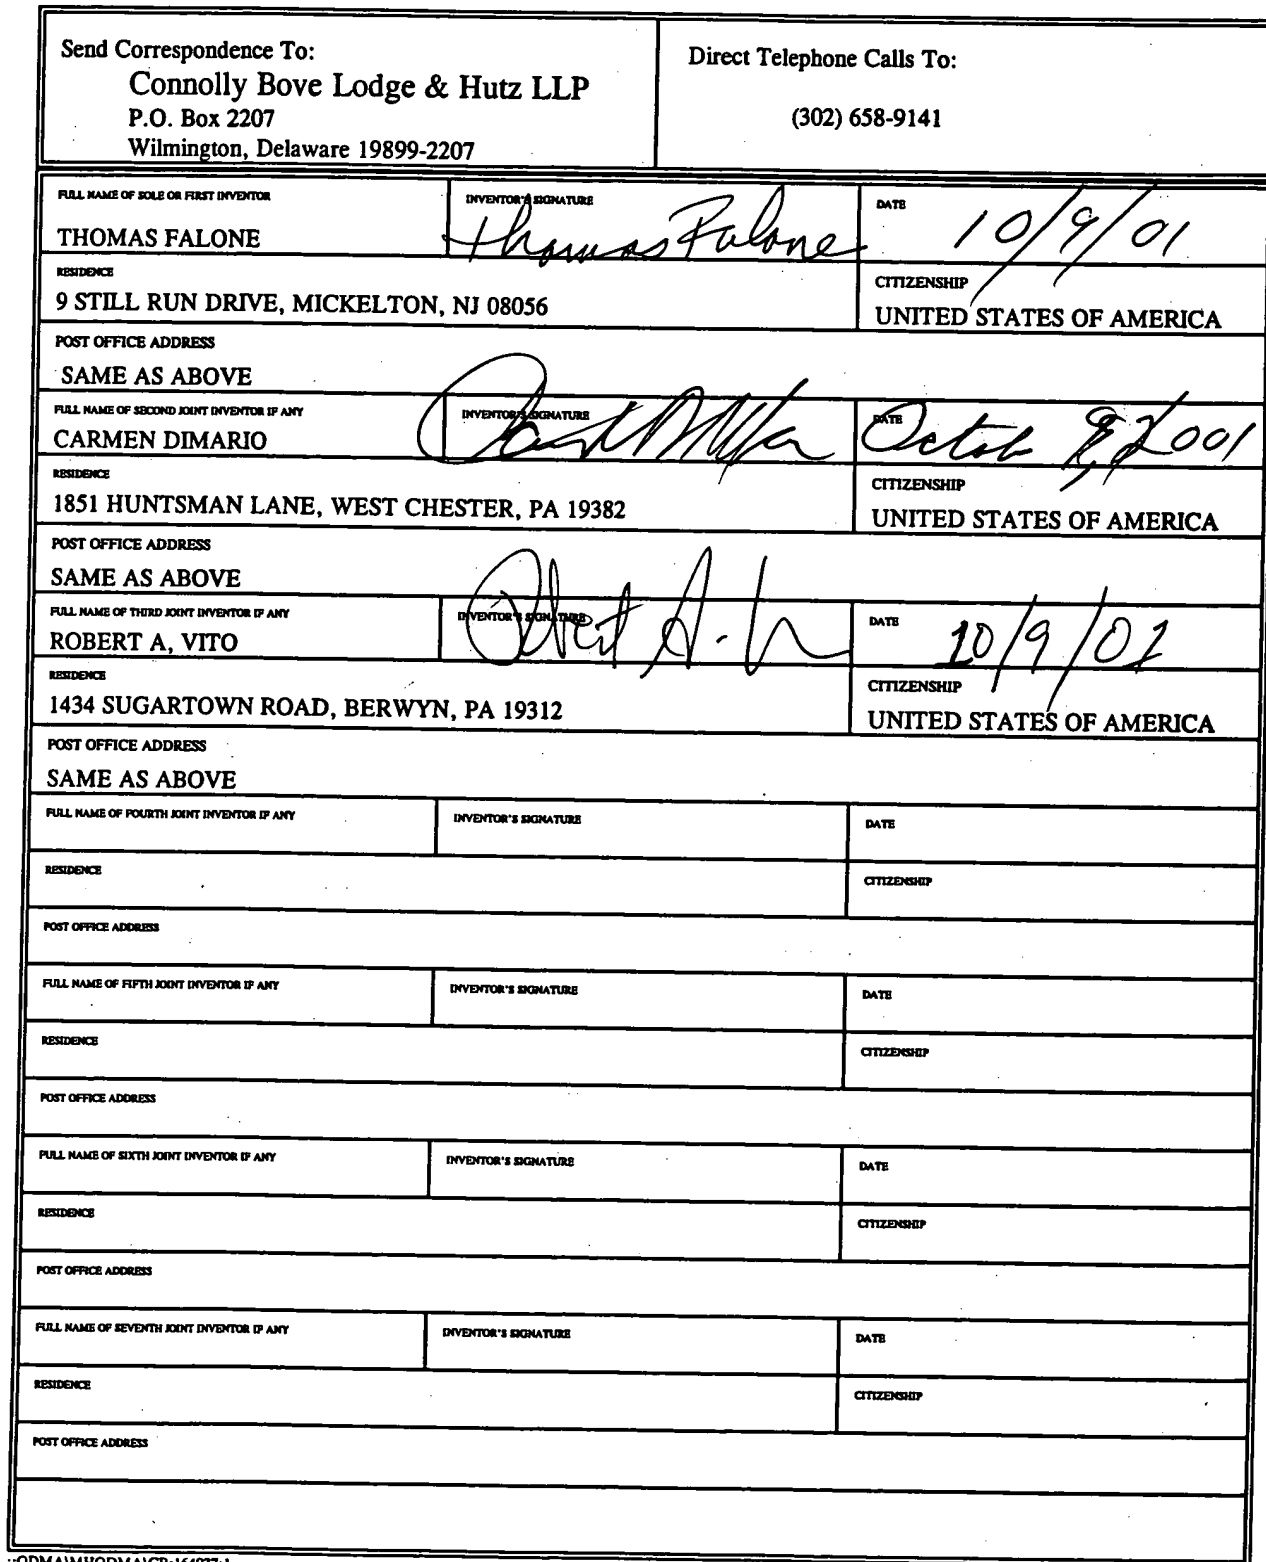 Send Correspondence To:
Connolly Bove Lodge & Hutz LLP
P.O. Box 2207
Wilmington, Delaware 19899-2207
Direct Telephone Calls To:
(302) 658-9141
FULL NAME OF SOLE OR FIRST INVENTOR
THOMAS FALONE
INVENTOR'S SIGNATURE
Thomas Falone
DATE
10/9/01
RESIDENCE
9 STILL RUN DRIVE, MICKELTON, NJ 08056
CITIZENSHIP
UNITED STATES OF AMERICA
POST OFFICE ADDRESS
SAME AS ABOVE
FULL NAME OF SECOND JOINT INVENTOR IF ANY
CARMEN DIMARIO
INVENTOR'S SIGNATURE
DATE
2001
RESIDENCE
1851 HUNTSMAN LANE, WEST CHESTER, PA 19382
CITIZENSHIP
UNITED STATES OF AMERICA
POST OFFICE ADDRESS
SAME AS ABOVE
FULL NAME OF THIRD JOINT INVENTOR IF ANY
ROBERT A, VITO
INVENTOR'S SIGNATURE
DATE
10/9/01
RESIDENCE
1434 SUGARTOWN ROAD, BERWYN, PA 19312
CITIZENSHIP
UNITED STATES OF AMERICA
POST OFFICE ADDRESS
SAME AS ABOVE
FULL NAME OF FOURTH JOINT INVENTOR IF ANY
INVENTOR'S SIGNATURE
DATE
RESIDENCE
CITIZENSHIP
POST OFFICE ADDRESS
FULL NAME OF FIFTH JOINT INVENTOR IF ANY
INVENTOR'S SIGNATURE
DATE
RESIDENCE
CITIZENSHIP
POST OFFICE ADDRESS
FULL NAME OF SIXTH JOINT INVENTOR IF ANY
INVENTOR'S SIGNATURE
DATE
RESIDENCE
CITIZENSHIP
POST OFFICE ADDRESS
FULL NAME OF SEVENTH JOINT INVENTOR IF ANY
INVENTOR'S SIGNATURE
DATE
RESIDENCE
CITIZENSHIP
POST OFFICE ADDRESS